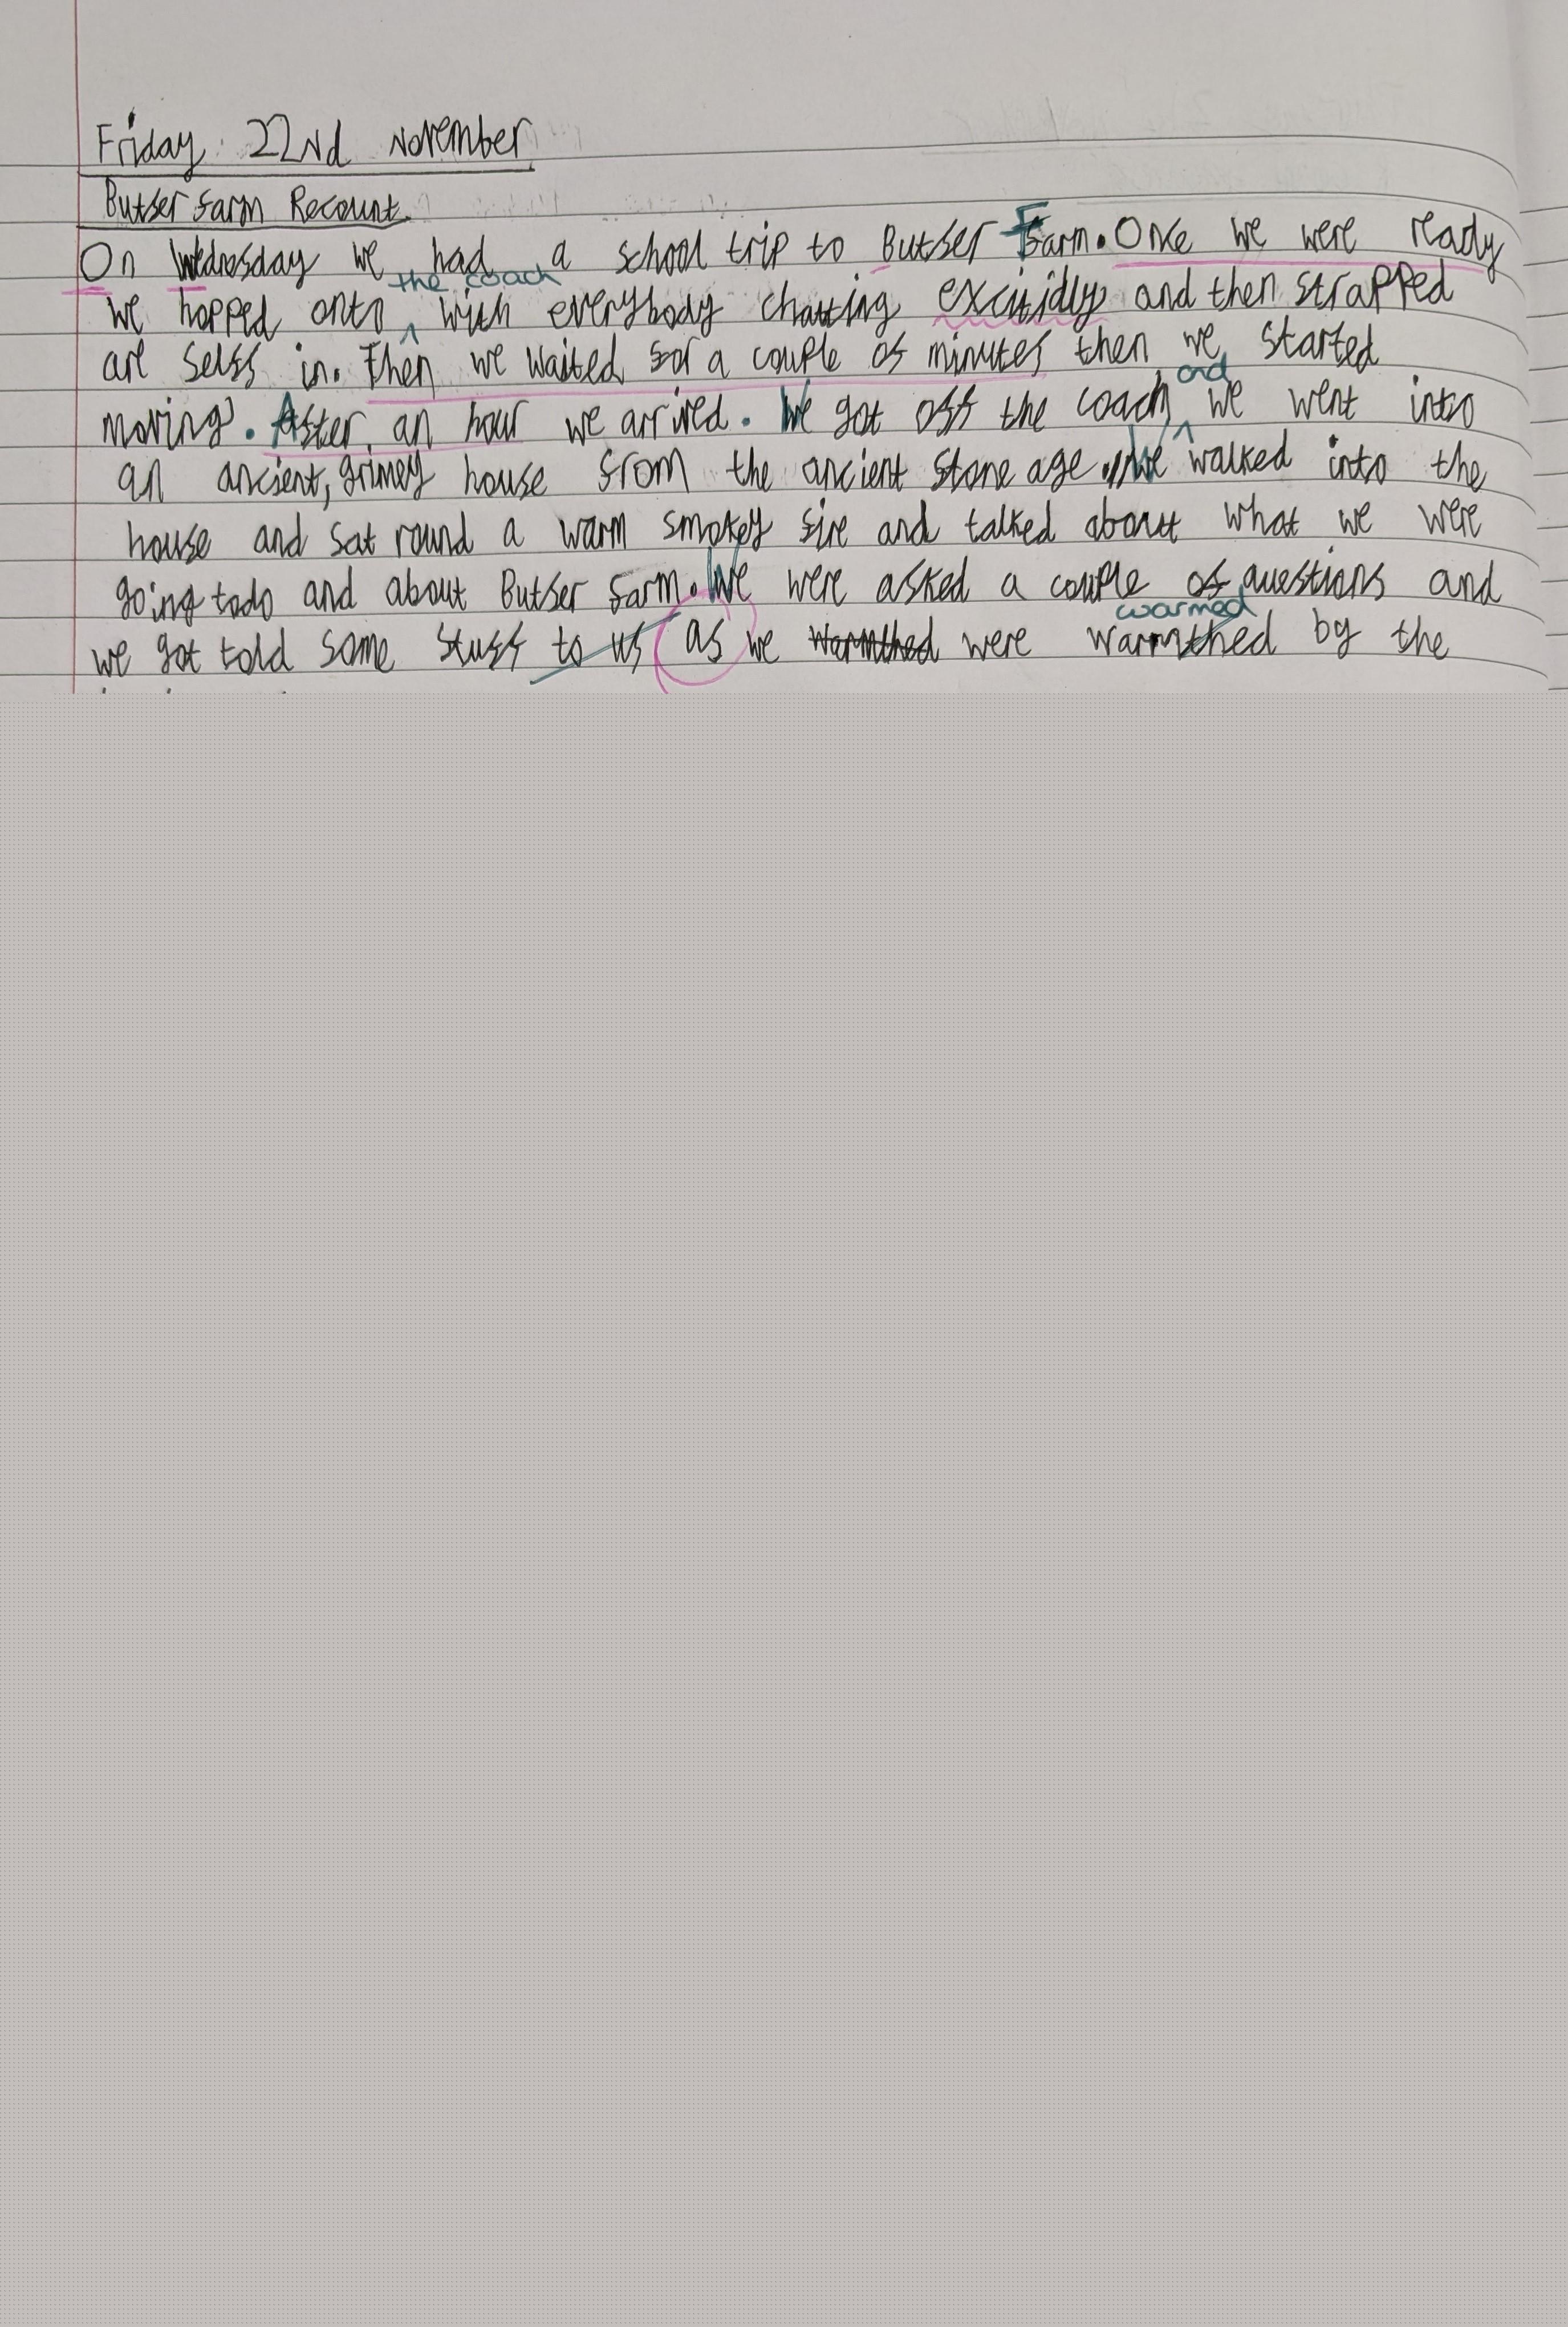 Friday 22nd November
Butser farm Recount.
On Wednesday we had a school trip to Butser Farm. Once we were ready
the coach
we hopped onto ^ with everybody chatting excitidly and then strapped
are selfs in. Then we waited for a couple of minutes then we started
and
moving. After an hour we arrived. We got off the coach ^ we went into
an ancient, grimey house from the ancient stone age. We walked into the
house and sat round a warm smokey fire and talked about what we were
going to do and about Butser farm. We were asked a couple of questions and
warmed
we got told some stuff to us as we warmthed were warmthed by the